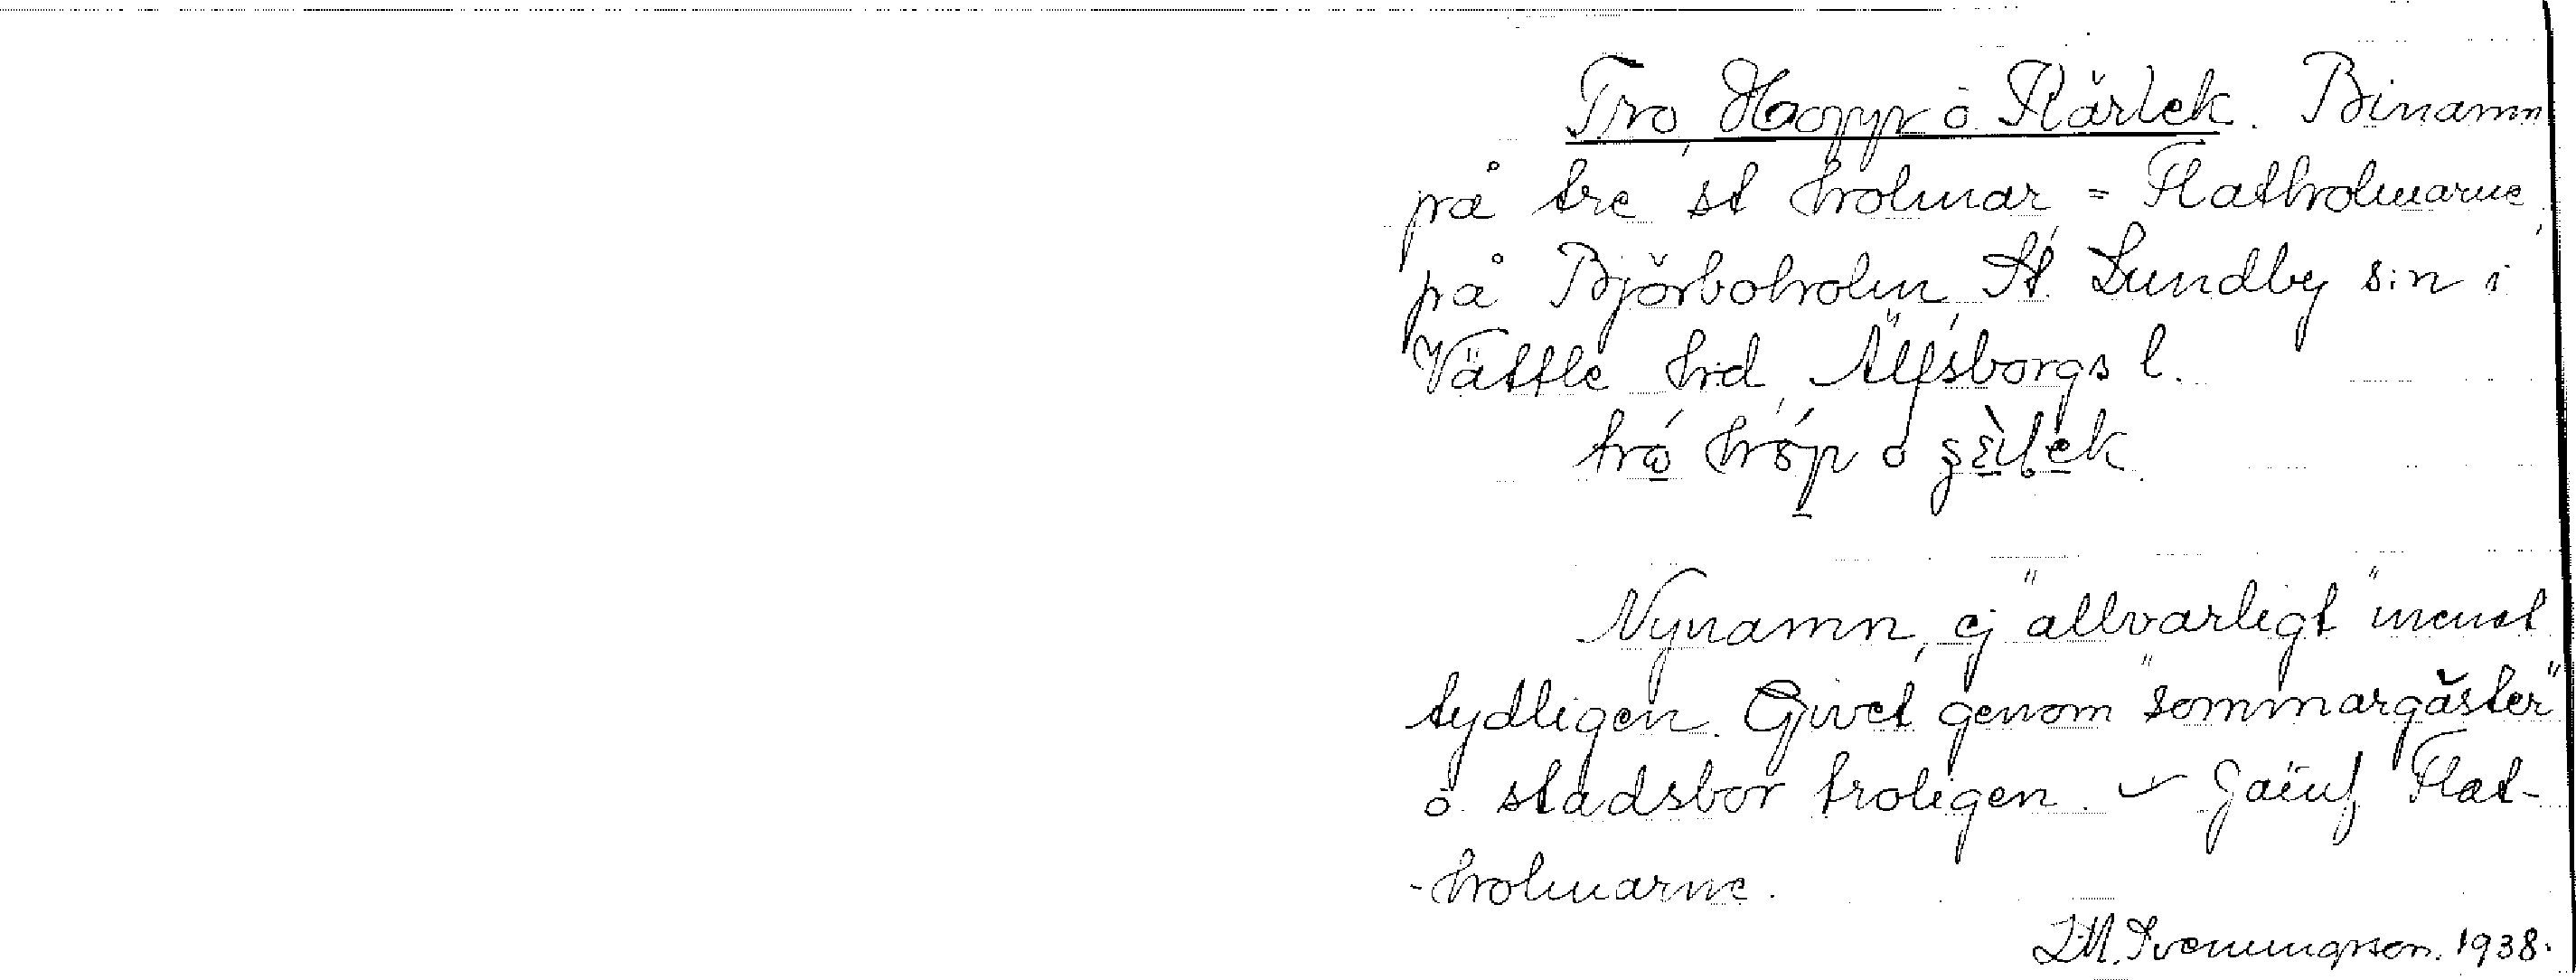 Tro, Hopp o. Kärlek. Binamn
på tre st holmar, = Flatholmarne,
på Björboholm, St. Lundby s:n i
Vättle hrd, Älfsborgs l.
Nynamn, ej "allvarligt" menat
tydligen. Givet genom "sommargäster"
o. stadsbor troligen. Jämf Flat-
-holmarne.
Svenungsson. 1938.